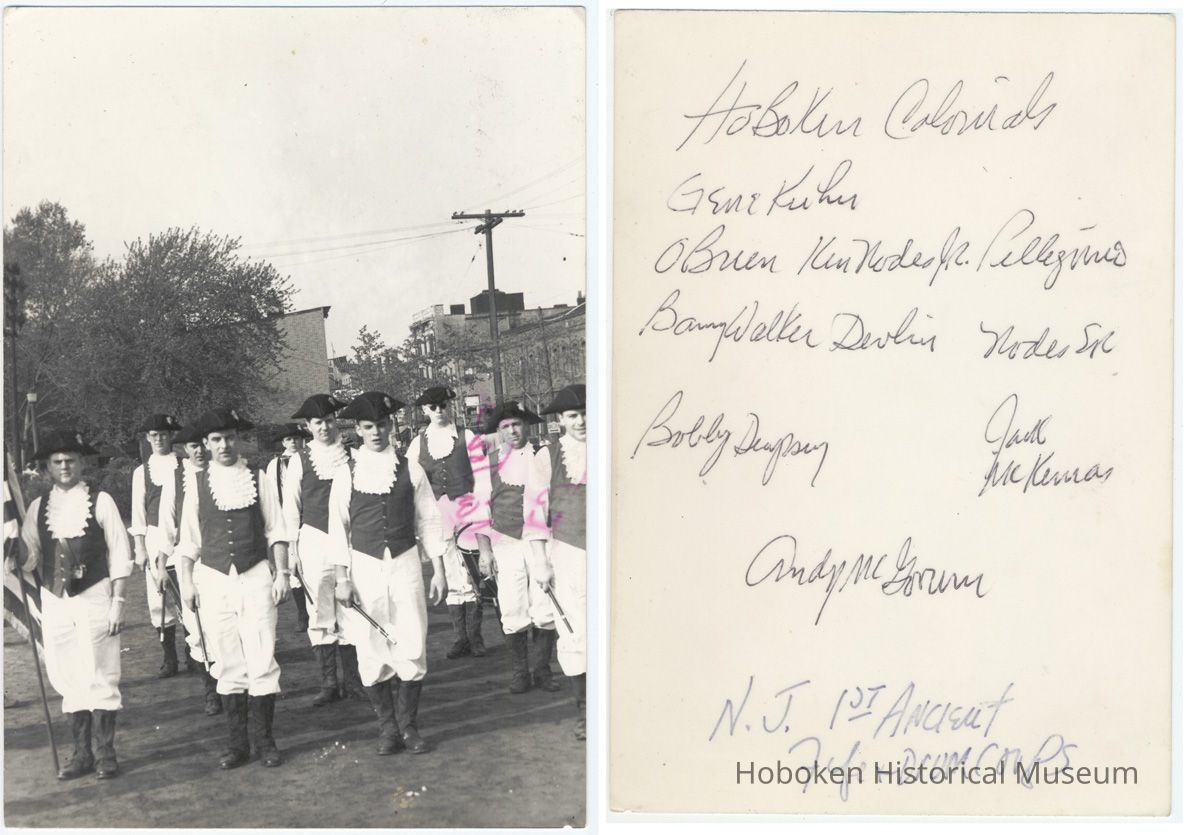 Hoboken Colonials
Gene Kuhn
OBrien Ken Nodes Jr. Pellegrino
Barry Walker Devlin Nodes Sr
Bobby Dempsey Jack
McKenna
Andy McGovern
N.J. 1ST ANCIENT
Fife - DRUM CORPS
Hoboken Historical Museum